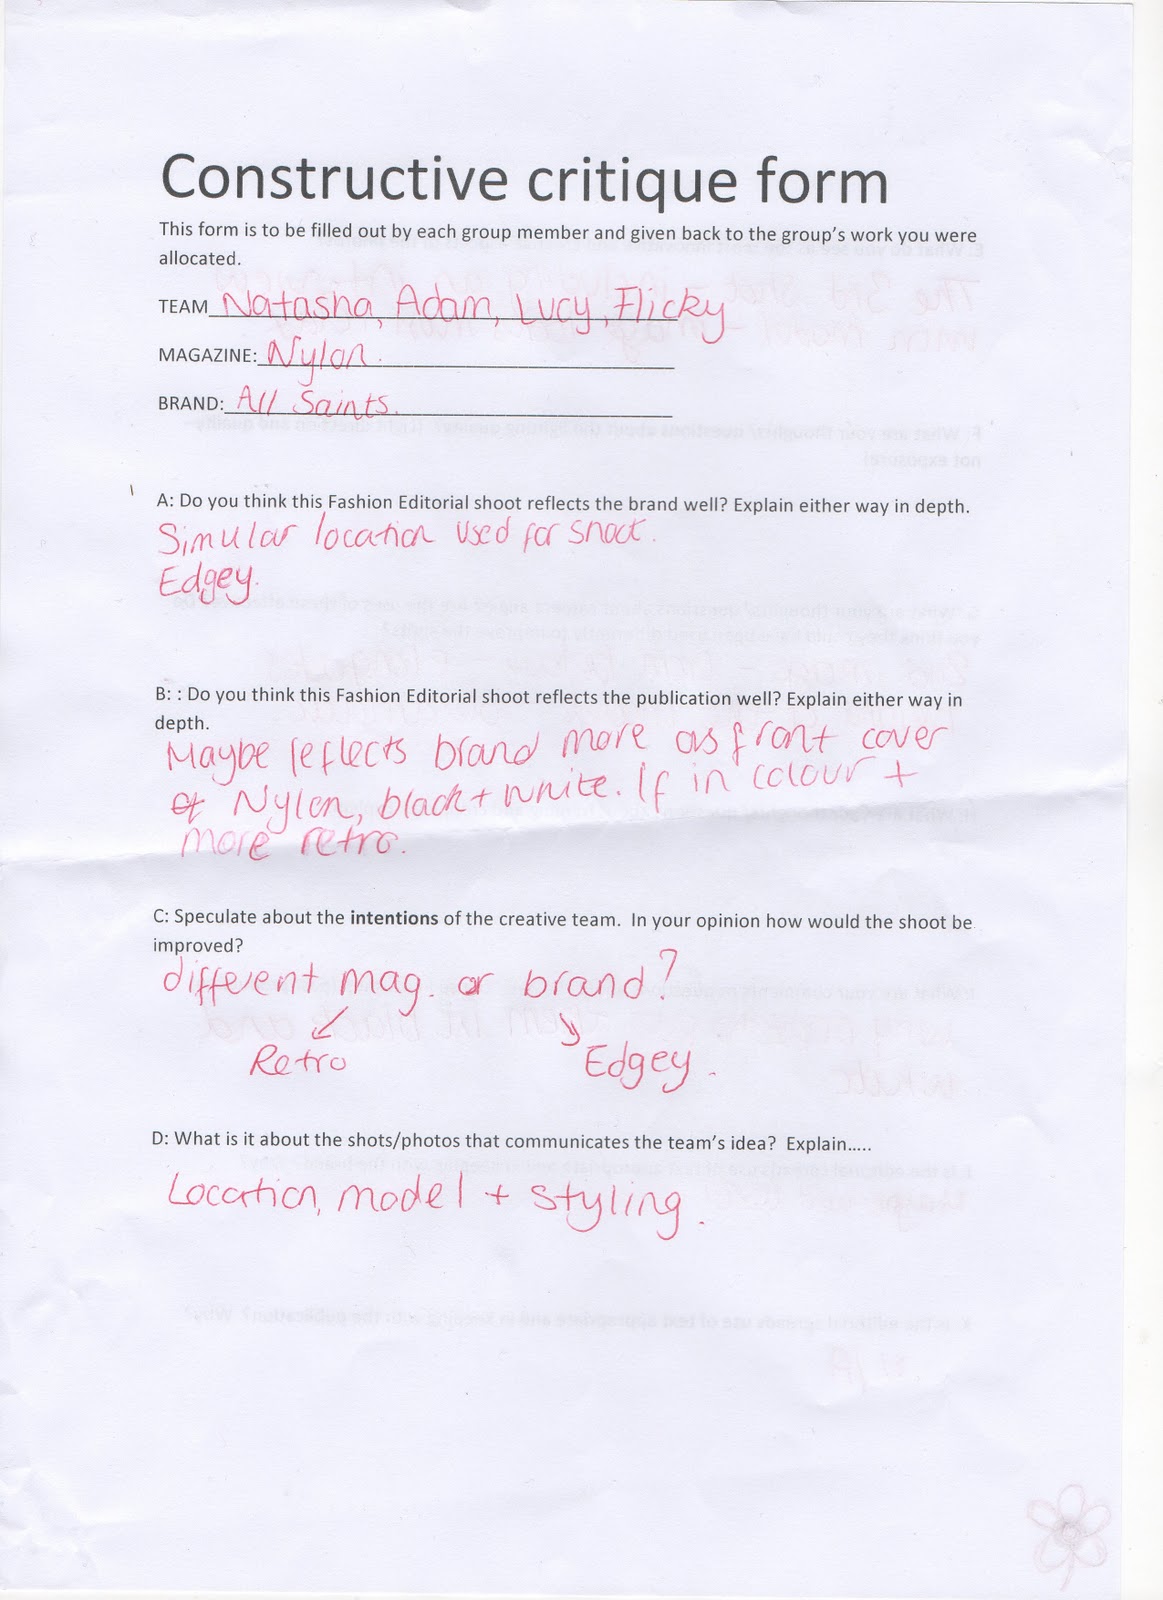 Constructive critique form
This form is to be filled out by each group member and given back to the group's work you were
allocated.
TEAM Natasha, Adam, Lucy, Flicky
MAGAZINE: Nylon.
BRAND: All Saints.
A: Do you think this Fashion Editorial shoot reflects the brand well? Explain either way in depth.
Simular location used for shoot.
Edgey.
B: : Do you think this Fashion Editorial shoot reflects the publication well? Explain either way in
depth.
Maybe reflects brand more as front cover
of Nylon, black + white. If in colour +
more retro.
C: Speculate about the intentions of the creative team. In your opinion how would the shoot be
improved?
different mag. or brand?
Retro Edgey.
D: What is it about the shots/photos that communicates the team's idea? Explain.....
Location, model + styling.